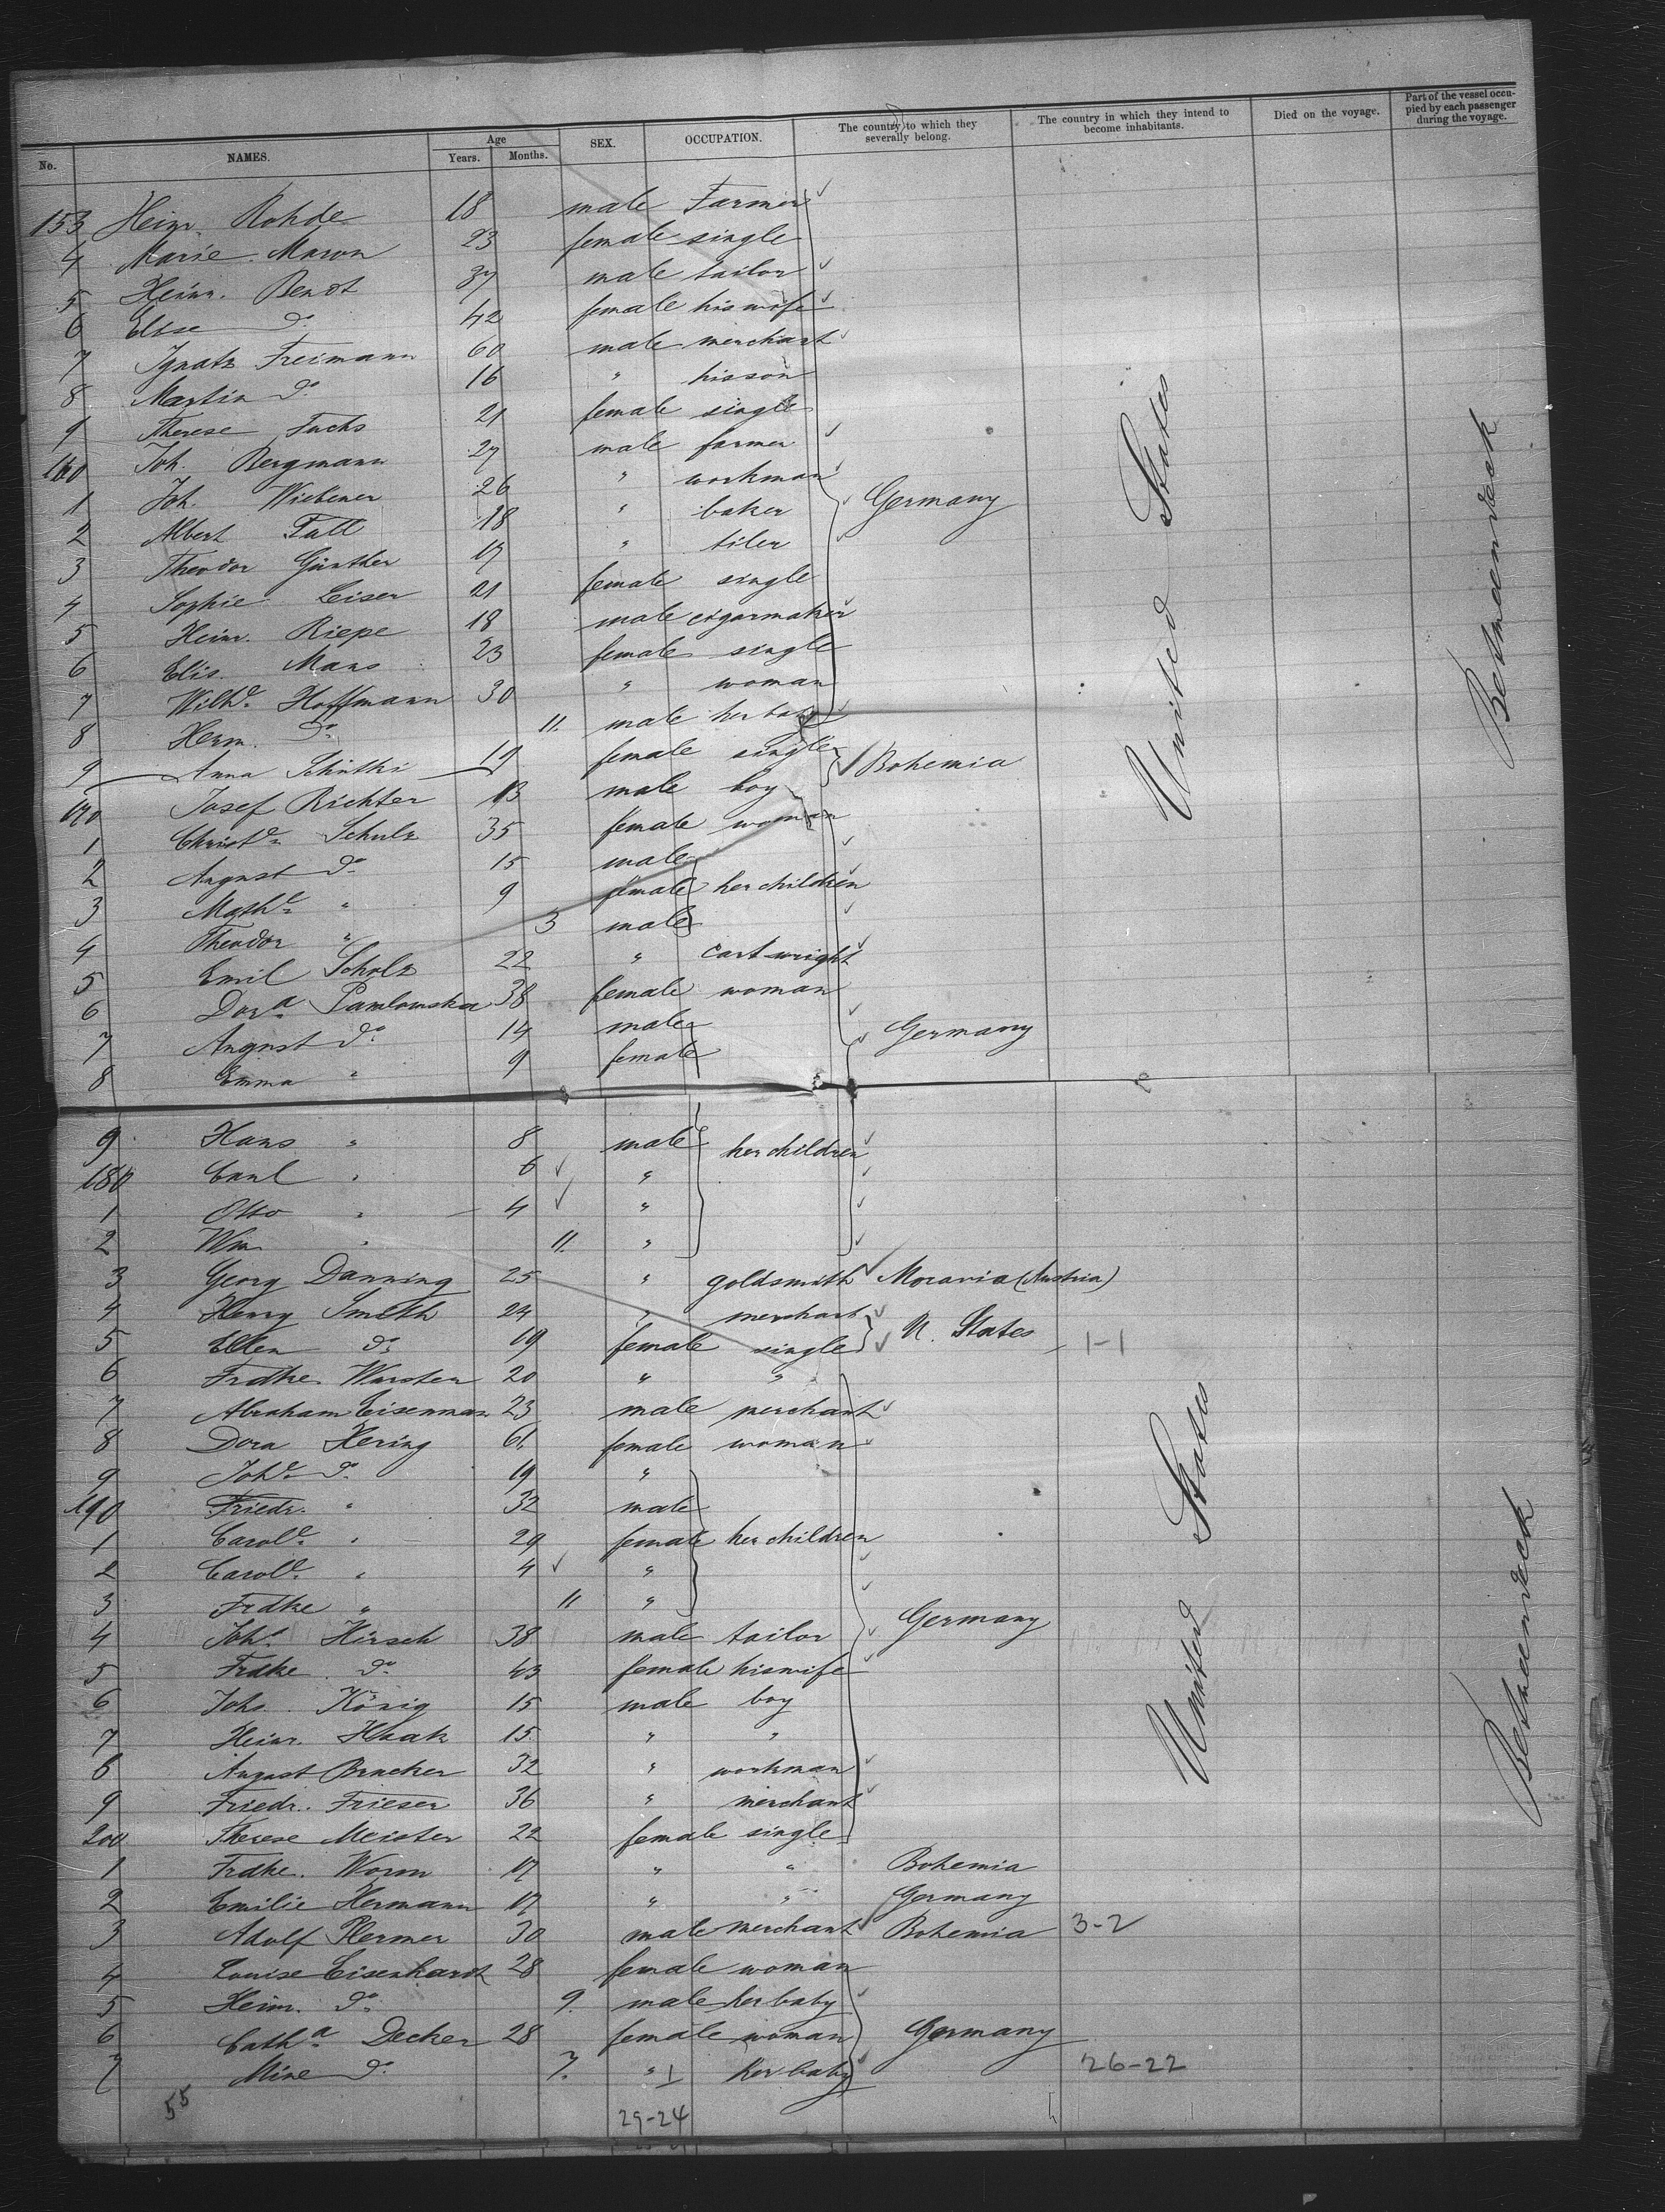 No. NAMES. Age Years. Months. SEX. OCCUPATION. The country to which they severally belong. The country in which they intend to become inhabitants. Died on the voyage. Part of the vessel occupied by each passenger during the voyage.
153 Heinr. Rohde 18 male Farmer
4 Marie Maron 23 female single
5 Heinr. Bendt 37 male tailor
6 Elise do 42 female his wife
7 Ignatz Freimann 60 male merchant
8 Martin do 16 " his son
9 Therese Fuchs 21 female single
160 Joh. Bergmann 27 male farmer
1 Joh. Wiebener 26 " workman
2 Albert Fall 18 " baker Germany
3 Theodor Günther 17 " tiler
4 Sophie Leiser 21 female single
5 Heinr. Riepe 18 male cigarmaker
6 Elis. Mans 23 female single
7 Wilhe. Hoffmann 30 " woman
8 Herm. do 11. male her baby
9 Anna 19 female single Bohemia
170 Josef Richter 13 male boy
1 Christe. Schulz 35 female woman
2 August do 15 male
3 Mathe. " 9 female her children
4 Theodor " 3 male
5 Emil Scholz 22 " cartwright
6 Dora. Pawlowska 38 female woman
7 August do 14 male Germany
8 Emma " 9 female
United States
Betweendeck
9 Hans " 8 male her children
180 Carl " 6 "
1 Otto " 4 "
2 Wm " 11. "
3 Georg Danning 25 " goldsmith Moravia (Austria)
4 Henry Smith 24 " merchant
5 Ellen do 19 female single U. States 1-1
6 Fradke. Warsten 20 " "
7 Abraham Eisenman 23 male merchant
8 Dora Hering 61 female woman
9 Johe. do 19 "
190 Friedr. " 32 male
1 Carole. " 29 female her children
2 Carole. " 4 "
3 Frdke " 11 "
4 Johs. Hirsch 38 male tailor Germany
5 Frdke. do 43 female his wife
6 Johs. König 15 male boy
7 Heinr. Haak 15. " "
8 August Bracker 32 " workman
9 Friedr. Frieser 36 " merchant
200 Therese Meister 22 female single
1 Frdke. Worm 17 " " Bohemia
2 Emilie Hermann 17 " " Germany
3 Adolf Hermer 30 male merchant Bohemia 3-2
4 Louise Eisenhardt 28 female woman
5 Heinr. do 9. male her baby
6 Catha. Decker 28 female woman Germany
7 Mine do 7. " 1 her baby 26-22
United States
Betweendeck
55
29-24